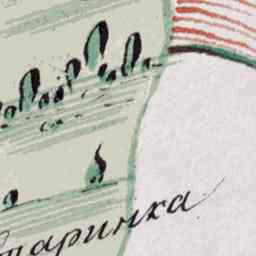 таринка